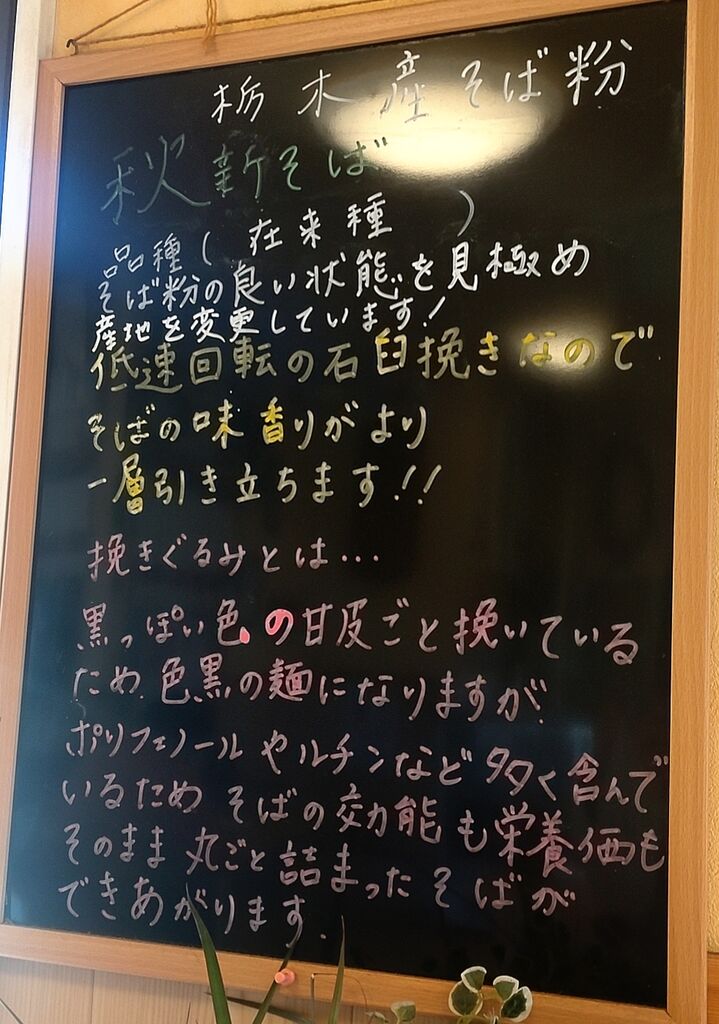 栃木産そば粉
秋新そば
品種(在来種)
そば粉の良い状態を見極め
産地を変更しています!
低速回転の石臼挽きなので
そばの味香りがより
一層引き立ちます!!
挽きぐるみとは…
黒っぽい色の甘皮ごと挽いている
ため色黒の麺になりますが
ポリフェノールやルチンなど多く含んで
いるためそばの効能も栄養価も
そのまま丸ごと詰まったそばが
できあがります.